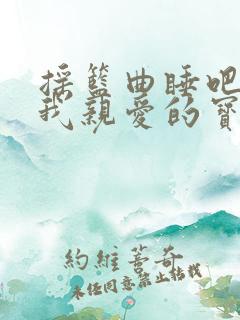 搖籃曲睡吧
我親愛的寶
約維蓍奇
未任同意禁止拈載